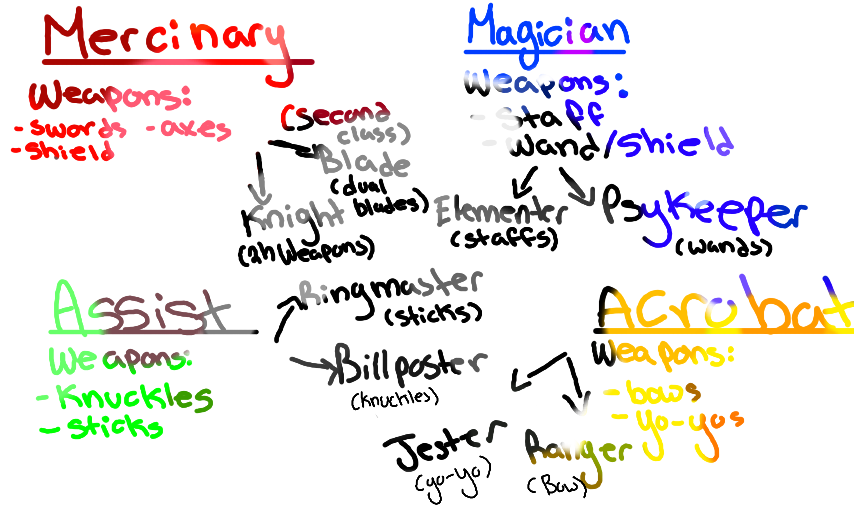 Mercinary
Weapons:
- swords - axes
- shield
(second
class)
Blade
(dual
blades)
Knight
(2h Weapons)
Magician
Weapons:
- Staff
- Wand/Shield
Elementer
(staffs)
PsyKeeper
(wands)
Assist
Weapons:
- Knuckles
- sticks
Ringmaster
(sticks)
Billposter
(Knuckles)
Acrobat
Weapons:
- bows
- Yo-yos
Jester
(yo-yo)
Ranger
(Bow)